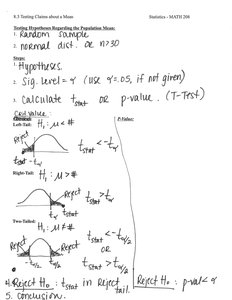 8.3 Testing Claims about a Mean Statistics - MATH 208
Testing Hypotheses Regarding the Population Mean:
1. Random sample
2. normal dist. or n>30
Steps:
1. Hypotheses.
2. Sig. level = α (use α=.05, if not given)
3. calculate t stat or p-value. (T-Test)
Crit value:
P-Value:
Left-Tail: H₁: μ < #
Reject
t stat < -tα
tstat -tα
Right-Tail: H₁: μ > #
Reject
t stat > tα
tα tstat
Two-Tailed: H₁: μ ≠ #
Reject Reject
t stat < -tα/2
or
t stat > tα/2
-tα/2 tα/2
4. Reject H₀: t stat in Reject tail. Reject H₀: p-val < α
5. conclusion.